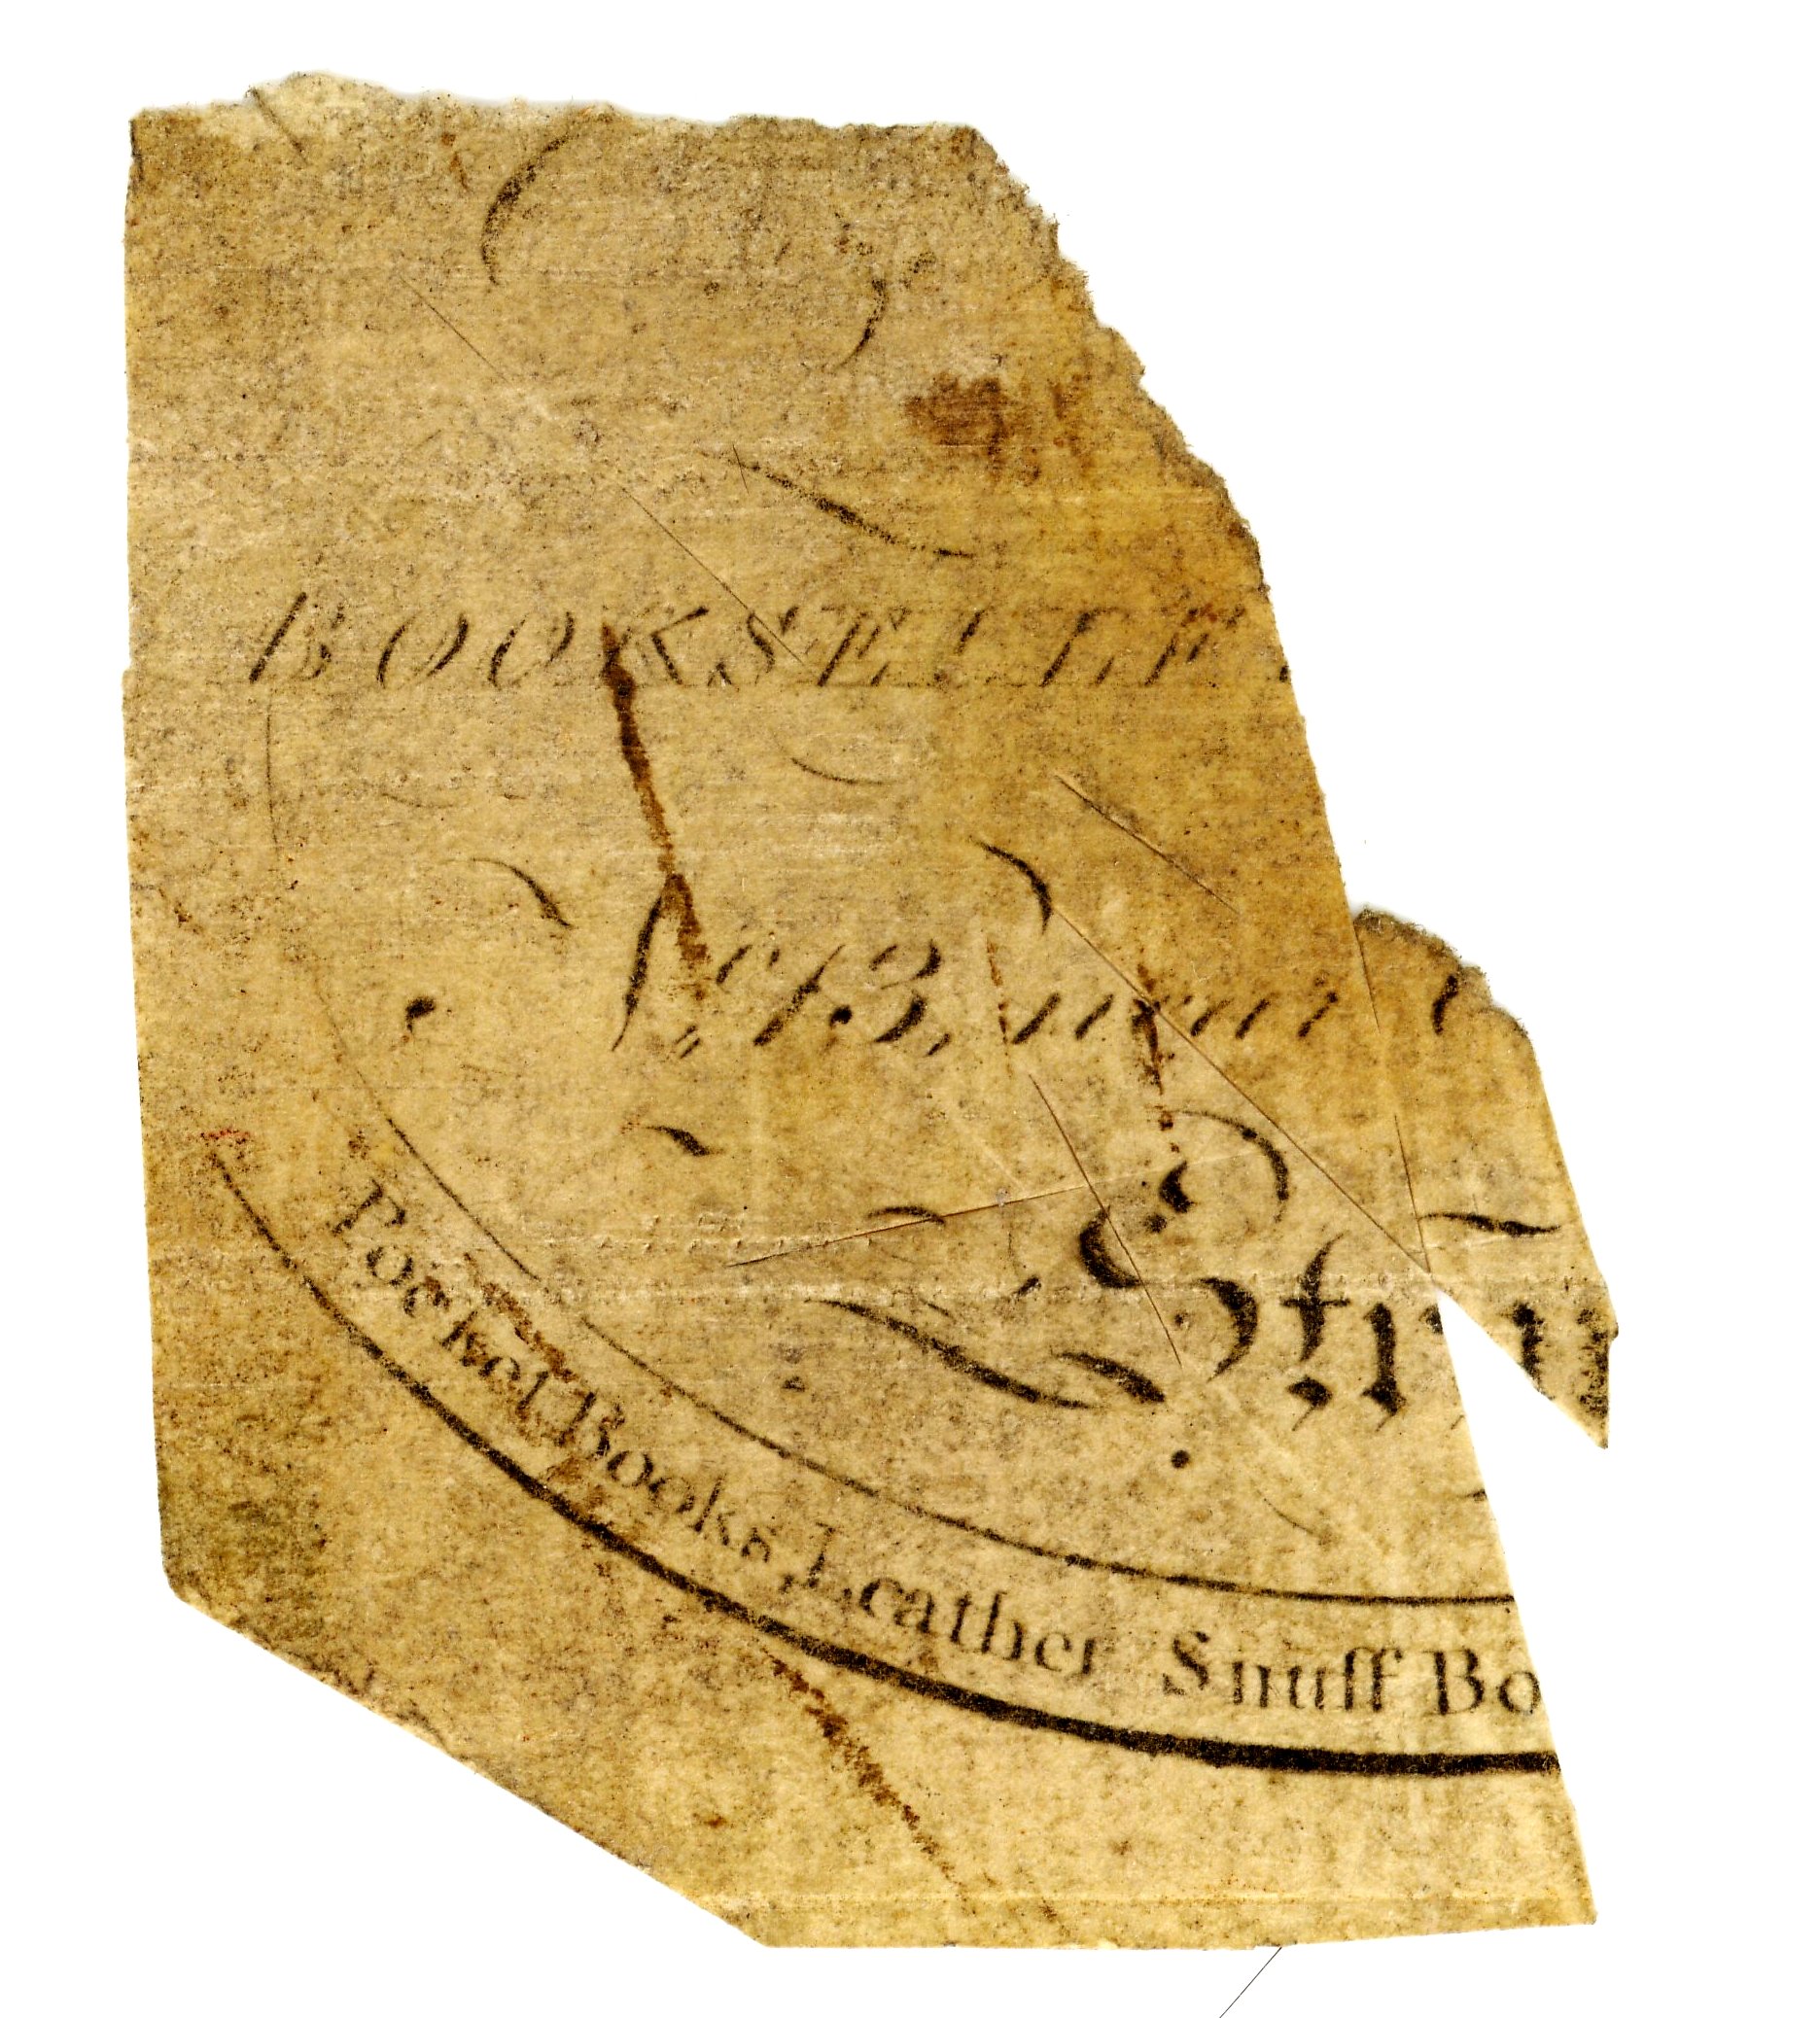 BOOKSELLE
No. 13, near
Str
Pocket Books, Leather Snuff Bo